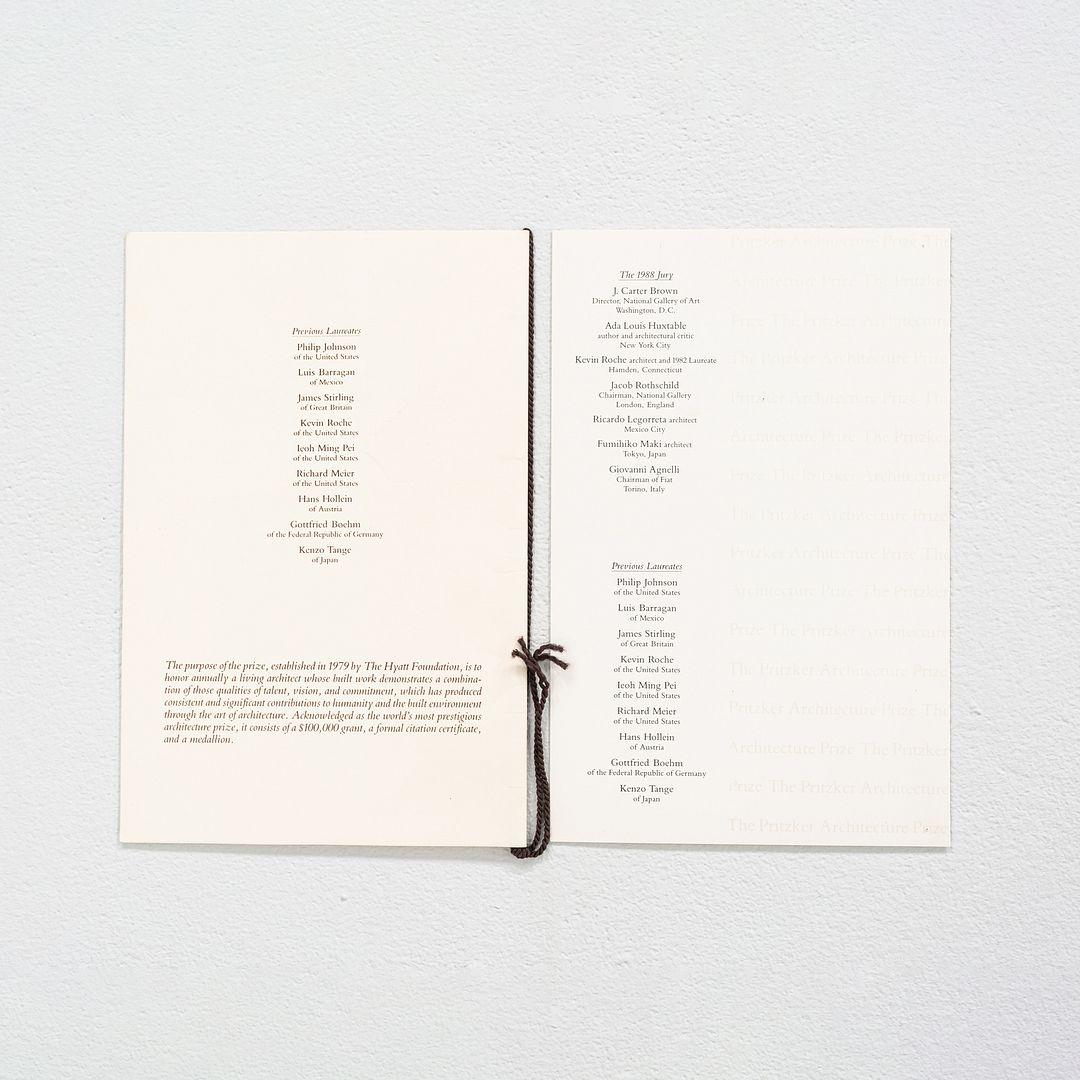 Previous Laureates
Philip Johnson
of the United States
Luis Barragan
of Mexico
James Stirling
of Great Britain
Kevin Roche
of the United States
Ieoh Ming Pei
of the United States
Richard Meier
of the United States
Hans Hollein
of Austria
Gottfried Boehm
of the Federal Republic of Germany
Kenzo Tange
of Japan
The purpose of the prize, established in 1979 by The Hyatt Foundation, is to
honor annually a living architect whose built work demonstrates a combina-
tion of those qualities of talent, vision, and commitment, which has produced
consistent and significant contributions to humanity and the built environment
through the art of architecture. Acknowledged as the world's most prestigious
architecture prize, it consists of a $100,000 grant, a formal citation certificate,
and a medallion.
The 1988 Jury
J. Carter Brown
Director, National Gallery of Art
Washington, D.C.
Ada Louis Huxtable
author and architectural critic
New York City
Kevin Roche architect and 1982 Laureate
Hamden, Connecticut
Jacob Rothschild
Chairman, National Gallery
London, England
Ricardo Legorreta architect
Mexico City
Fumihiko Maki architect
Tokyo, Japan
Giovanni Agnelli
Chairman of Fiat
Torino, Italy
Previous Laureates
Philip Johnson
of the United States
Luis Barragan
of Mexico
James Stirling
of Great Britain
Kevin Roche
of the United States
Ieoh Ming Pei
of the United States
Richard Meier
of the United States
Hans Hollein
of Austria
Gottfried Boehm
of the Federal Republic of Germany
Kenzo Tange
of Japan
Pritzker Architecture Prize The
Architecture Prize The Pritzker
Prize The Pritzker Architecture
The Pritzker Architecture Prize
Pritzker Architecture Prize The
Architecture Prize The Pritzker
Prize The Pritzker Architecture
The Pritzker Architecture Prize
Pritzker Architecture Prize The
Architecture Prize The Pritzker
Prize The Pritzker Architecture
The Pritzker Architecture Prize
Pritzker Architecture Prize The
Architecture Prize The Pritzker
Prize The Pritzker Architecture
The Pritzker Architecture Prize